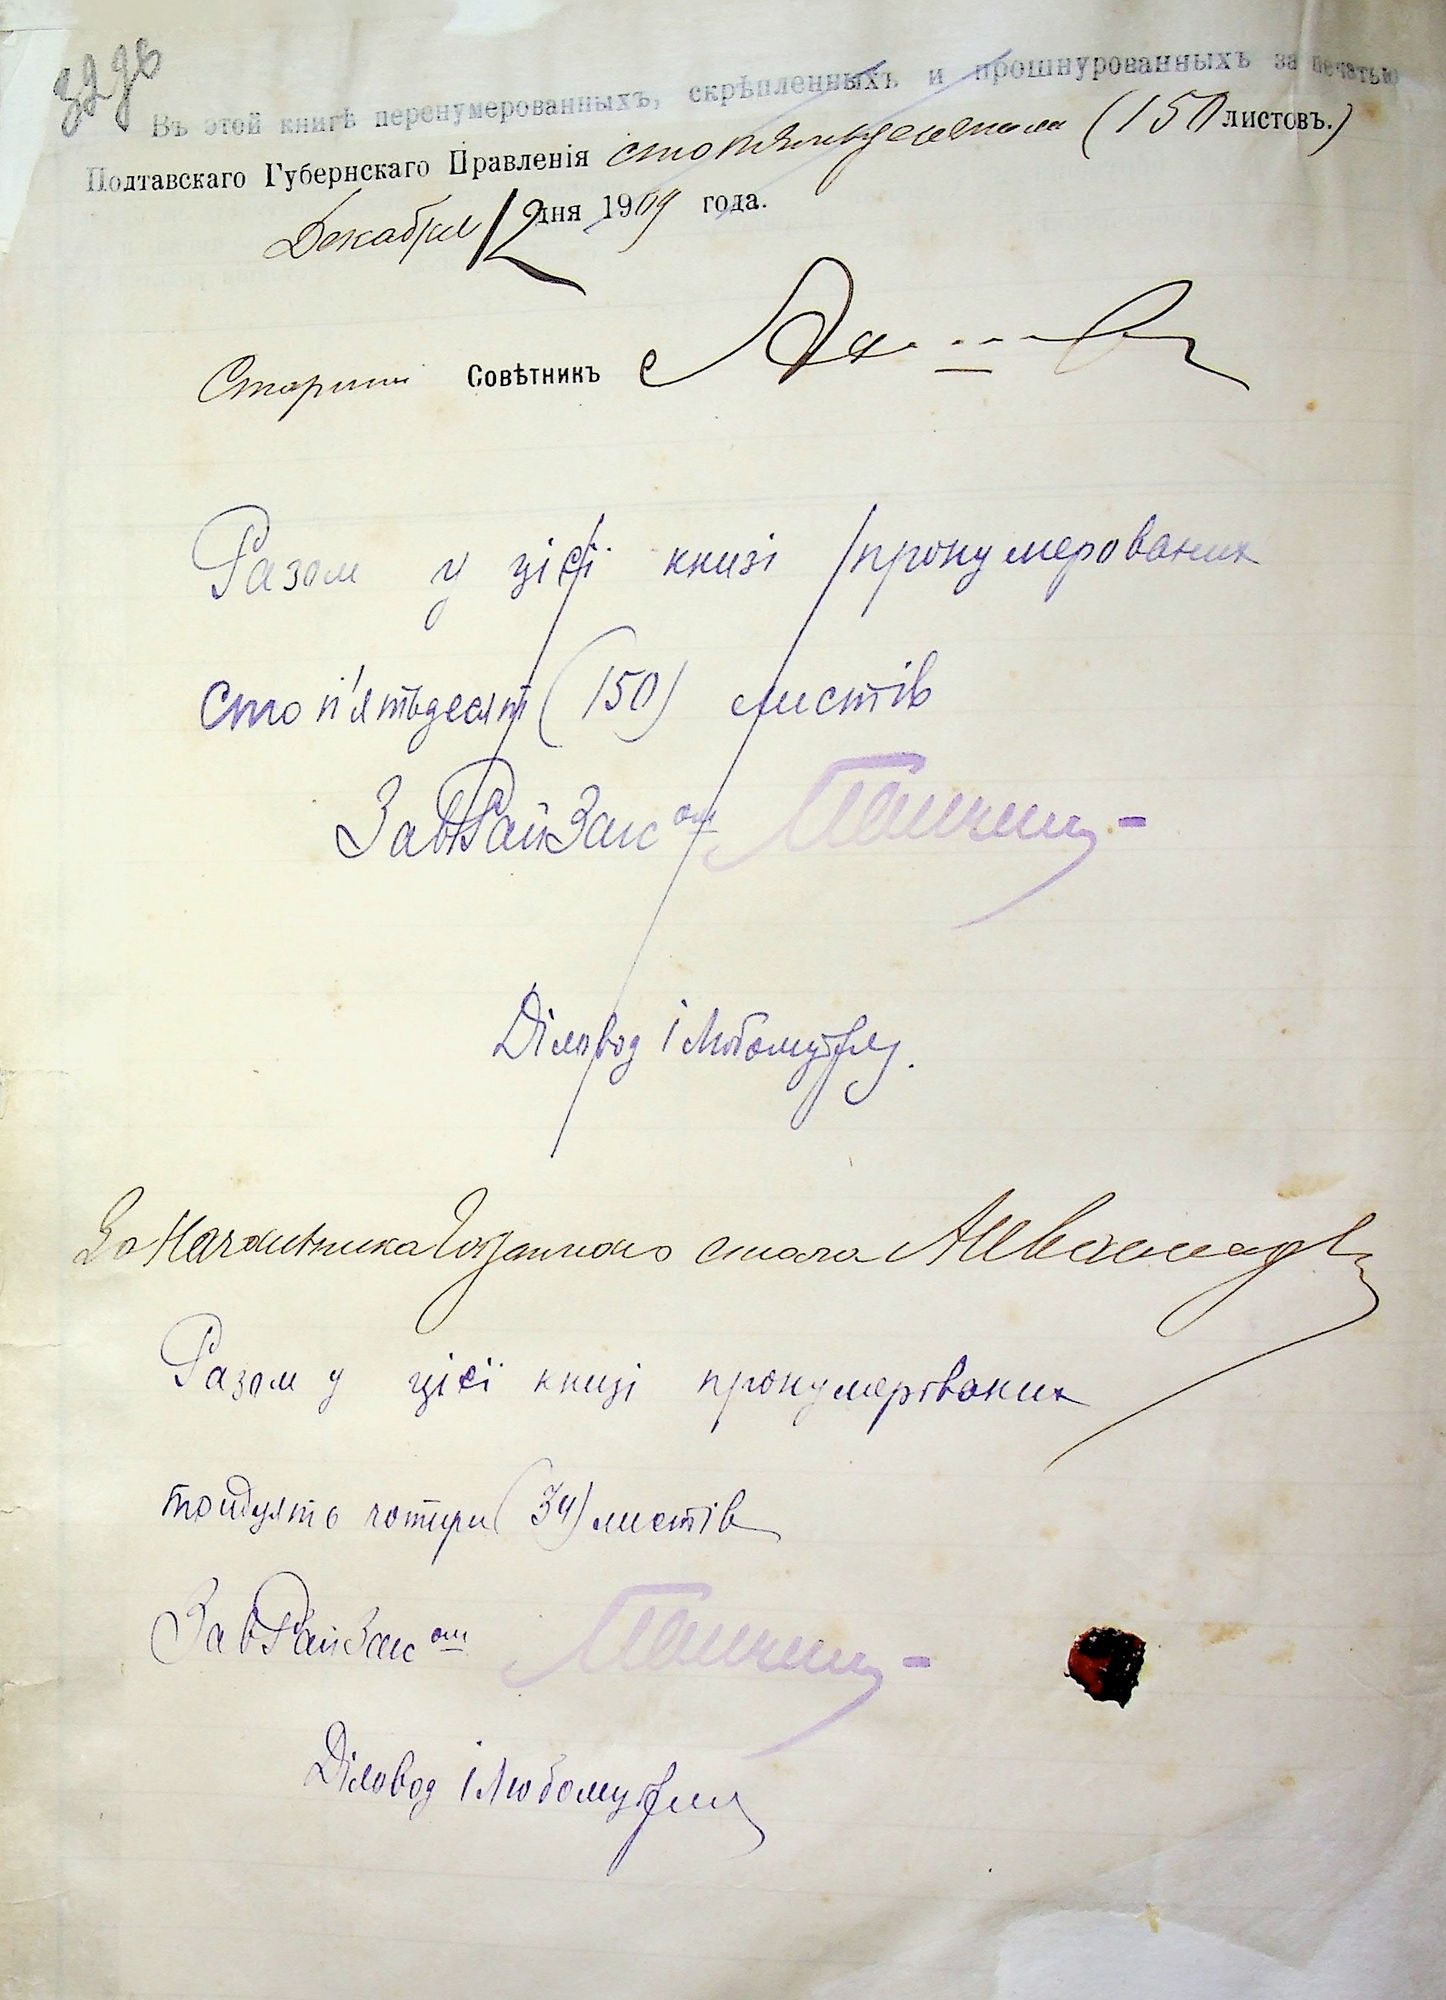 Въ этой книгѣ перенумерованныхъ, скрѣпленныхъ и прошнурованныхъ за печатью
Полтавскаго Губернскаго Правленія сто пятьдесятъ (150 листовъ.)
Декабря 12 дня 1909 года.
Старшій Совѣтникъ
Разом у цієї книзі пронумерованих
сто п'ятьдесят (150) листів
ЗавРайЗаг
Діловод І Любомудр
За Начальника Газетнаго стола
Разом у цієї книзі пронумерованих
тридцять чотири (34) листів
ЗавРайЗаг
Діловод І Любомудр